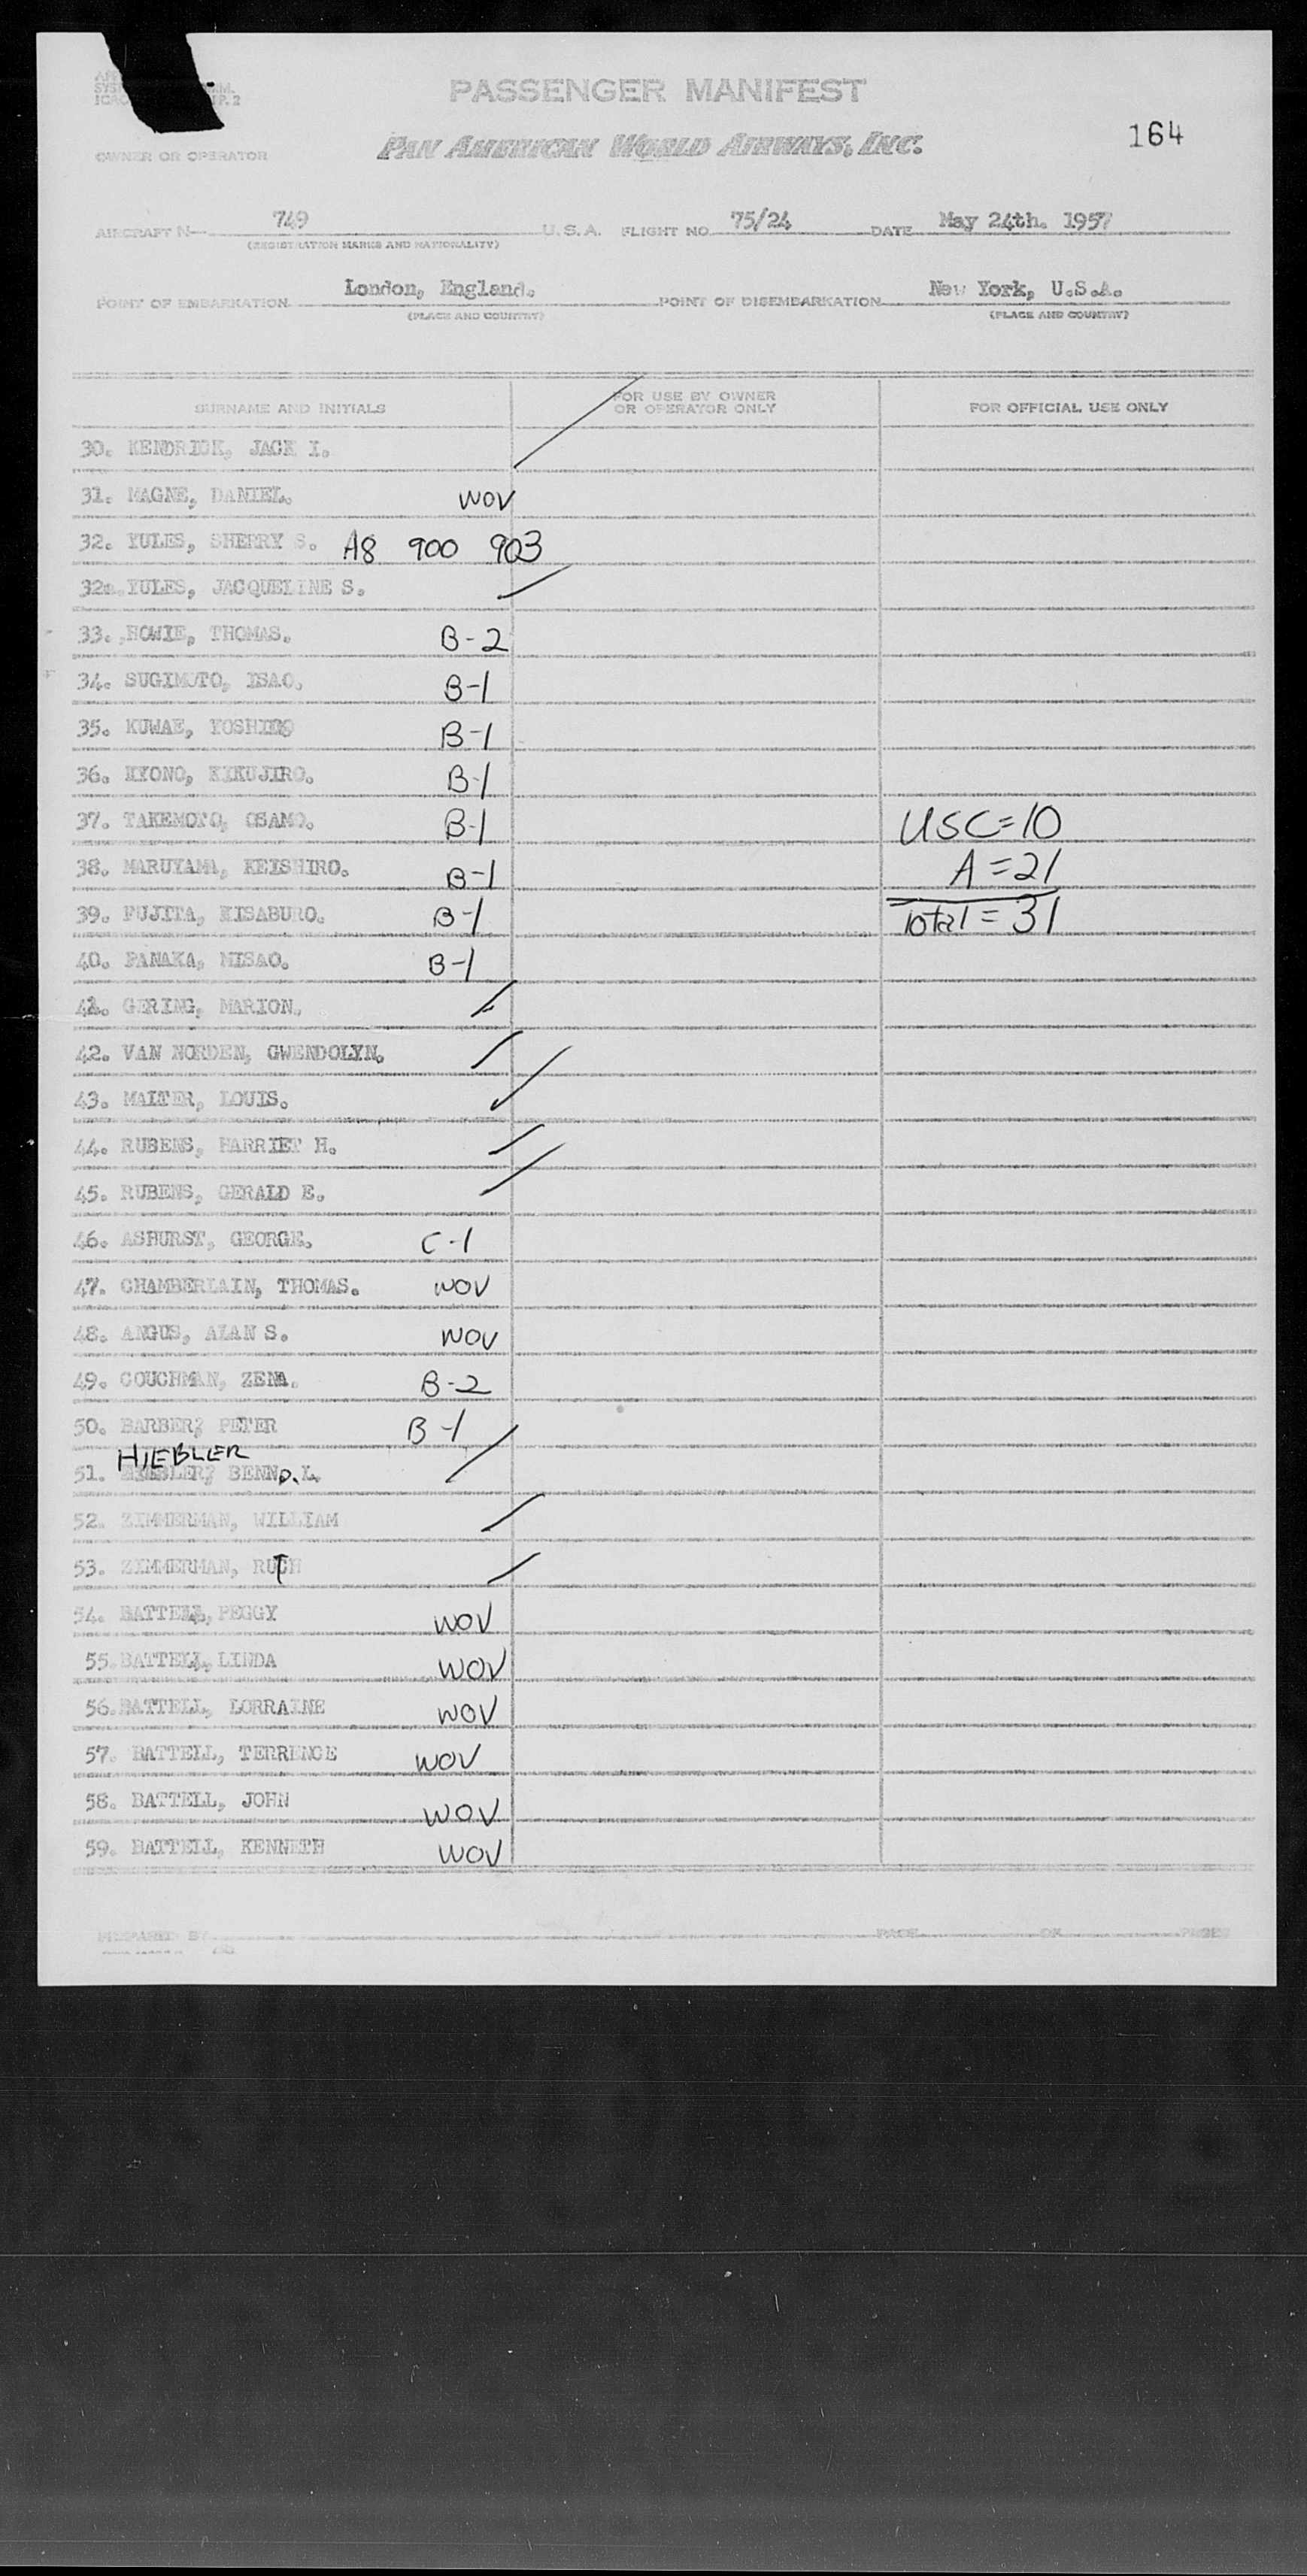 PASSENGER MANIFEST
PAN AMERICAN WORLD AIRWAYS, INC.
164
OWNER OR OPERATOR
AIRCRAFT N— 749 U.S.A. FLIGHT NO. 75/24 DATE May 24th. 1957
(REGISTRATION MARKS AND NATIONALITY)
POINT OF EMBARKATION London, England. POINT OF DISEMBARKATION New York, U.S.A.
(PLACE AND COUNTRY) (PLACE AND COUNTRY)
SURNAME AND INITIALS FOR USE BY OWNER OR OPERATOR ONLY FOR OFFICIAL USE ONLY
30. KENDRICK, JACK I.
31. MAGNE, DANIEL. WOV
32. YULES, SHERRY S. A8 900 903
32a. YULES, JACQUELINE S.
33. HOWIE, THOMAS. B-2
34. SUGIMOTO, ISAO. B-1
35. KUWAE, YOSHIRO B-1
36. KYONO, KIKUJIRO. B-1
37. TAKEMOTO, OSAMO. B-1 USC=10
38. MARUYAMA, KEISHIRO. B-1 A=21
39. FUJITA, KISABURO. B-1 Total=31
40. PANAKA, MISAO. B-1
41. GERING, MARION.
42. VAN NORDEN, GWENDOLYN.
43. MALTER, LOUIS.
44. RUBENS, HARRIET H.
45. RUBENS, GERALD E.
46. ASHURST, GEORGE. C-1
47. CHAMBERLAIN, THOMAS. WOV
48. ANGUS, ALAN S. WOV
49. COUCHMAN, ZENA. B-2
50. BARBER, PETER B-1
HIEBLER
51. BENNO. L.
52. ZIMMERMAN, WILLIAM
53. ZIMMERMAN, RUTH
54. BATTELL, PEGGY WOV
55. BATTELL, LINDA WOV
56. BATTELL, LORRAINE WOV
57. BATTELL, TERRENCE WOV
58. BATTELL, JOHN WOV
59. BATTELL, KENNETH WOV
PREPARED BY PAGE OF PAGES